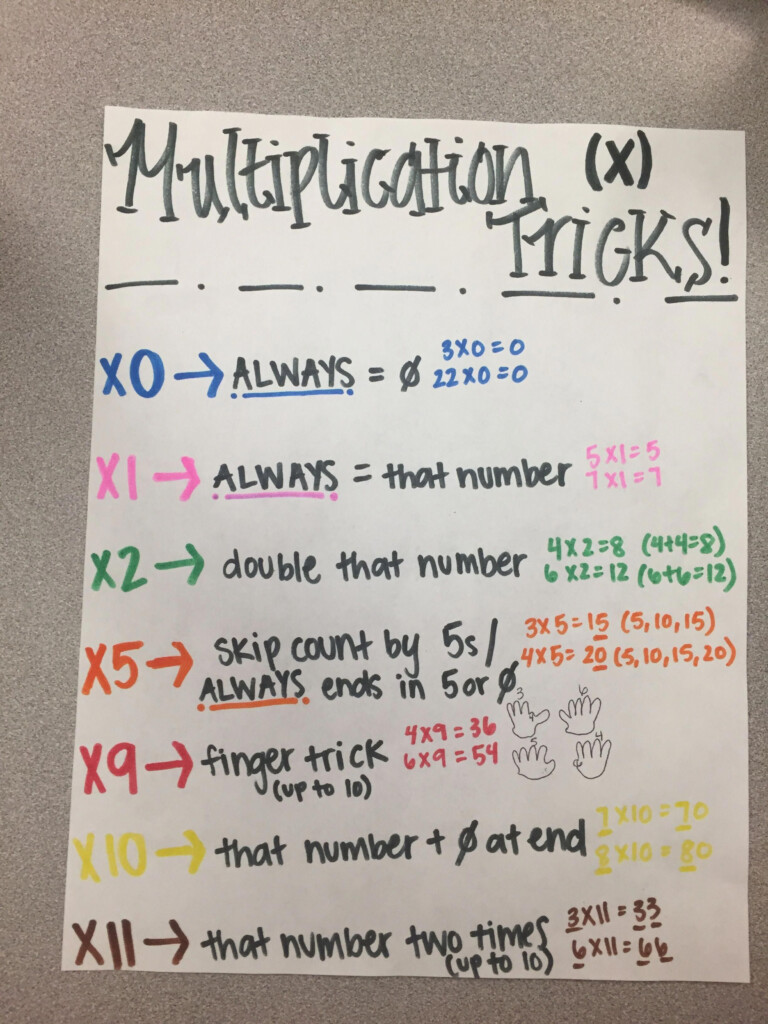 Multiplication (x)
Tricks!
x0 → ALWAYS = Ø 3x0=0
22x0=0
x1 → ALWAYS = that number 5x1=5
7x1=7
x2 → double that number 4x2=8 (4+4=8)
6x2=12 (6+6=12)
x5 → skip count by 5s/ 3x5=15 (5,10,15)
ALWAYS ends in 5 or Ø 4x5=20 (5,10,15,20)
x9 → finger trick 4x9=36
(up to 10) 6x9=54
3 6
5 4
x10 → that number + Ø at end 7x10=70
8x10=80
x11 → that number two times 3x11=33
(up to 10) 6x11=66